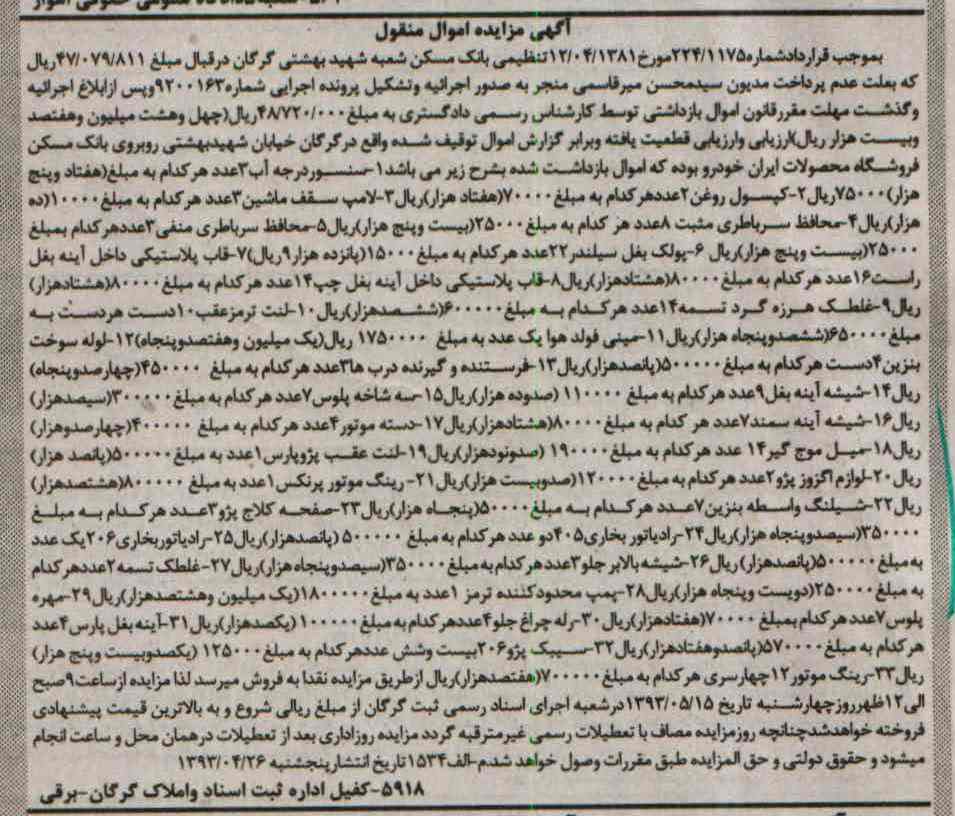 آگهی مزایده اموال منقول
بموجب قراردادشماره۲۲۴/۱۱۷۵مورخ۱۲/۰۴/۱۳۸۱تنظیمی بانک مسکن شعبه شهید بهشتی گرگان درقبال مبلغ ۴۷/۰۷۹/۸۱۱ریال
که بعلت عدم پرداخت مدیون سیدمحسن میرقاسمی منجر به صدور اجرائیه وتشکیل پرونده اجرایی شماره۹۲۰۰۱۶۳وپس ازابلاغ اجرائیه
وگذشت مهلت مقررقانون اموال بازداشتی توسط کارشناس رسمی دادگستری به مبلغ۴۸/۷۲۰/۰۰۰ریال(چهل وهشت میلیون وهفتصد
وبیست هزار ریال)ارزیابی وارزیابی قطعیت یافته وبرابر گزارش اموال توقیف شده واقع درگرگان خیابان شهیدبهشتی روبروی بانک مسکن
فروشگاه محصولات ایران خودرو بوده که اموال بازداشت شده بشرح زیر می باشد۱-سنسوردرجه آب۳عدد هرکدام به مبلغ(هفتاد وپنج
هزار)۷۵۰۰۰ریال۲-کپسول روغن۲عددهرکدام به مبلغ۷۰۰۰۰(هفتاد هزار)ریال۳-لامپ سقف ماشین۳عدد هرکدام به مبلغ۱۰۰۰۰(ده
هزار)ریال۴-محافظ سرباطری مثبت ۸عدد هر کدام به مبلغ۲۵۰۰۰(بیست وپنج هزار)ریال۵-محافظ سرباطری منفی۳عددهرکدام بمبلغ
۲۵۰۰۰(بیست وپنج هزار)ریال ۶-پولک بغل سیلندر۲۲عدد هرکدام به مبلغ۱۵۰۰۰(پانزده هزار۹ریال)۷-قاب پلاستیکی داخل آینه بغل
راست۱۶عدد هرکدام به مبلغ۸۰۰۰۰(هشتادهزار)ریال۸-قاب پلاستیکی داخل آینه بغل چپ۱۴عدد هرکدام به مبلغ۸۰۰۰۰(هشتادهزار)
ریال۹-غلطک هرزه گرد تسمه۱۴عدد هرکدام به مبلغ۶۰۰۰۰۰(ششصدهزار)ریال۱۰-لنت ترمزعقب۱۰دست هردست به
مبلغ۶۵۰۰۰۰(ششصدوپنجاه هزار)ریال۱۱-مینی فولد هوا یک عدد به مبلغ ۱۷۵۰۰۰۰ ریال(یک میلیون وهفتصدوپنجاه)۱۲-لوله سوخت
بنزین۴دست هرکدام به مبلغ۵۰۰۰۰۰(پانصدهزار)ریال۱۳-فرستنده و گیرنده درب ها۳عدد هرکدام به مبلغ ۴۵۰۰۰۰(چهارصدوپنجاه)
ریال۱۴-شیشه آینه بغل۹عدد هرکدام به مبلغ ۱۱۰۰۰۰ (صدوده هزار)ریال۱۵-سه شاخه پلوس۷عدد هرکدام به مبلغ۳۰۰۰۰۰(سیصدهزار)
ریال۱۶-شیشه آینه سمند۷عدد هر کدام به مبلغ۸۰۰۰۰(هشتادهزار)ریال۱۷-دسته موتور۴عدد هرکدام به مبلغ ۴۰۰۰۰۰(چهارصدوهزار)
ریال۱۸-میل موج گیر۱۴ عدد هرکدام به مبلغ۱۹۰۰۰۰ (صدونودهزار)ریال۱۹-لنت عقب پژوپارس۱عدد به مبلغ۵۰۰۰۰۰(پانصد هزار)
ریال۲۰-لوازم اگزوز پژو۲عدد هرکدام به مبلغ۱۲۰۰۰۰(صدوبیست هزار)ریال۲۱-رینگ موتور پرنکس۱عدد به مبلغ ۸۰۰۰۰۰(هشتصدهزار)
ریال۲۲-شیلنگ واسطه بنزین۷عدد هرکدام به مبلغ۵۰۰۰۰(پنجاه هزار)ریال۲۳-صفحه کلاج پژو۳عدد هرکدام به مبلغ
۳۵۰۰۰۰(سیصدوپنجاه هزار)ریال۲۴-رادیاتور بخاری۴۰۵دو عدد هرکدام به مبلغ ۵۰۰۰۰۰ (پانصدهزار)ریال۲۵-رادیاتوربخاری۲۰۶یک عدد
به مبلغ۵۰۰۰۰۰(پانصدهزار) ریال۲۶-شیشه بالابر جلو۳عددهرکدام به مبلغ۳۵۰۰۰۰(سیصدوپنجاه هزار)ریال۲۷-غلطک تسمه۲عددهرکدام
به مبلغ۲۵۰۰۰۰(دویست وپنجاه هزار)ریال۲۸-پمپ محدودکننده ترمز ۱عدد به مبلغ۱۸۰۰۰۰۰(یک میلیون وهشتصدهزار)ریال۲۹-مهره
پلوس۷عدد هرکدام بمبلغ ۷۰۰۰۰(هفتادهزار)ریال۳۰-رله چراغ جلو۴عددهرکدام به مبلغ۱۰۰۰۰۰ (یکصدهزار)ریال۳۱-آینه بغل پارس۴عدد
هرکدام به مبلغ۵۷۰۰۰۰(پانصدوهفتادهزار)ریال۳۲-سیبک پژو۲۰۶بیست وشش عددهرکدام به مبلغ۱۲۵۰۰۰ (یکصدوبیست وپنج هزار)
ریال۳۳-رینگ موتور۱۲چهارسری هرکدام به مبلغ۷۰۰۰۰۰(هفتصدهزار)ریال ازطریق مزایده نقدا به فروش میرسد لذا مزایده ازساعت۹صبح
الی۱۲ظهرروزچهارشنبه تاریخ ۱۳۹۳/۰۵/۱۵درشعبه اجرای اسناد رسمی ثبت گرگان از مبلغ ریالی شروع و به بالاترین قیمت پیشنهادی
فروخته خواهدشدچنانچه روزمزایده مصاف با تعطیلات رسمی غیرمترقبه گردد مزایده روزاداری بعد از تعطیلات درهمان محل و ساعت انجام
میشود و حقوق دولتی و حق المزایده طبق مقررات وصول خواهد شد.م-الف۱۵۳۴تاریخ انتشارپنجشنبه ۱۳۹۳/۰۴/۲۶
۵۹۱۸-کفیل اداره ثبت اسناد واملاک گرگان-برقی